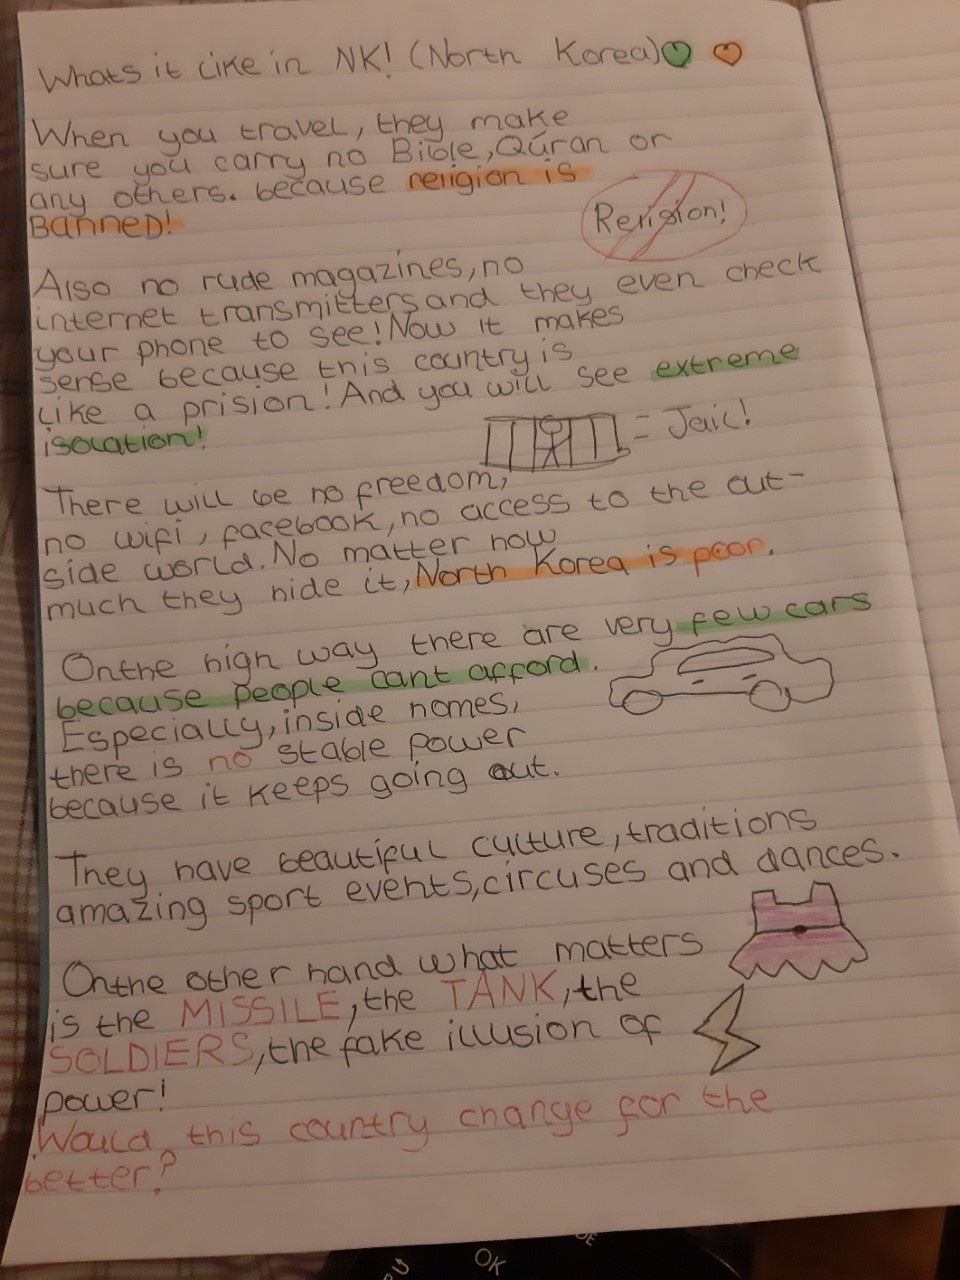 Whats it like in NK! (North Korea)
When you travel, they make
sure you carry no Bible, Qúran or
any others. because religion is
Banned!
Religion!
Also no rude magazines, no
internet transmitters and they even check
your phone to see! Now it makes
sense because this country is
like a prision! And you will see extreme
isolation!
= Jail!
There will be no freedom,
no wifi, facebook, no access to the out-
side world. No matter how
much they hide it, North Korea is poor.
Onthe high way there are very few cars
because people cant afford.
Especially, inside homes,
there is no stable power
because it keeps going out.
They have beautiful culture, traditions
amazing sport events, circuses and dances.
Onthe other hand what matters
is the MISSILE, the TANK, the
SOLDIERS, the fake illusion of
power!
Would this country change for the
better?
OK